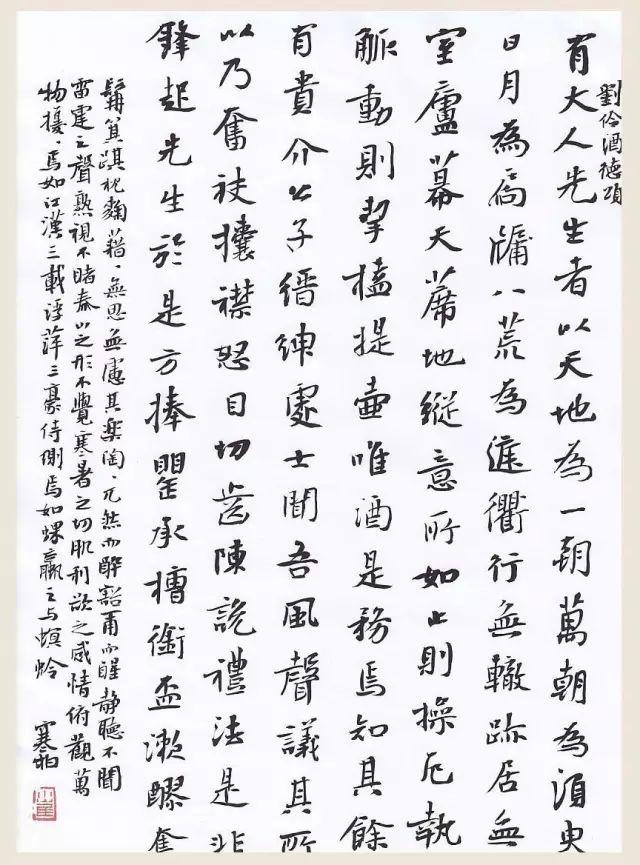 劉伶酒德頌
有大人先生者以天地為一朝萬朝為須臾
日月為扃牖八荒為庭衢行無轍跡居無
室廬幕天蓆地縱意所如止則操卮執
觚動則挈榼提壺唯酒是務焉知其餘
有貴介公子縉紳處士聞吾風聲議其所
以乃奮袂攘襟怒目切齒陳說禮法是非
鋒起先生於是方捧罌承槽銜盃漱醪奮
髯箕踑枕麴藉、無思無慮其樂陶、兀然而醉豁爾而醒靜聽不聞
雷霆之聲熟視不睹泰山之形不覺寒暑之切肌利欲之感情俯觀萬
物擾、焉如江漢三載浮萍三豪侍側焉如蜾蠃之与螟蛉
寒